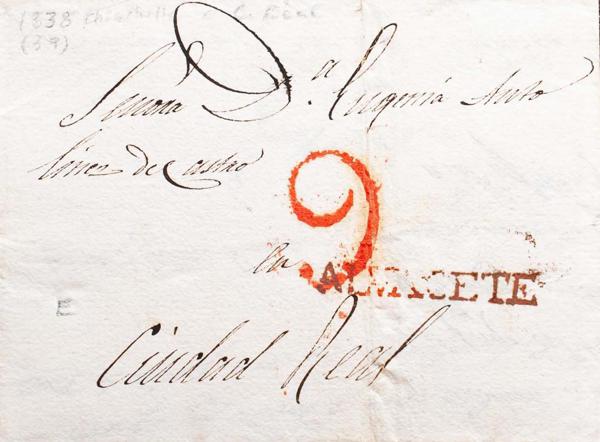 1838 Chinchilla a C. Real
(39)
Señora D.ª Eugenia Anto
linez de Castro
9
en ALVACETE
E
Ciudad Real